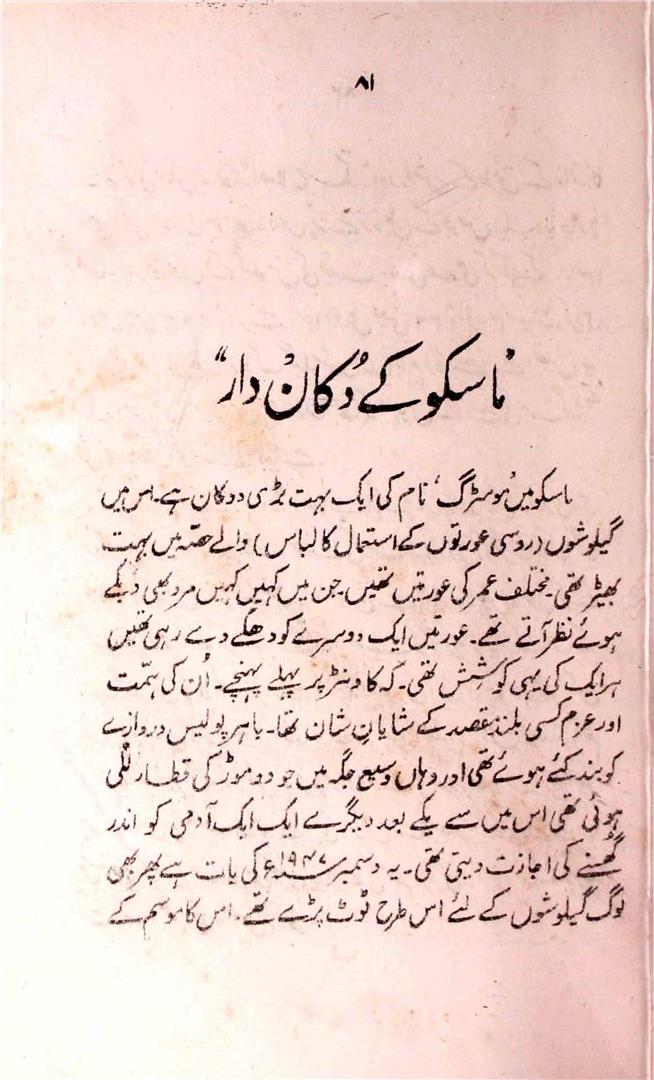 ۸۱
"ماسکو کے دُکان دار"
ماسکو میں 'ہوسٹرگ' نام کی ایک بہت بڑی دوکان ہے۔ اس میں
گیلوشوں (روسی عورتوں کے استمال کا لباس) والے حصّہ میں بہت
بھیڑ تھی۔ مختلف عمر کی عورتیں تھیں۔ جن میں کہیں کہیں مرد بھی دبکے
ہوئے نظر آتے تھے۔ عورتیں ایک دوسرے کو دھکے دے رہی تھیں
ہر ایک کی یہی کوشش تھی۔ کہ کاونٹر پر پہلے پہنچے۔ اُن کی ہمّت
اور عزم کسی بلند مقصد کے شایانِ شان تھا۔ باہر پولیس دروازے
کو بند کئے ہوئے تھی اور وہاں وسیع جگہ میں جو دو موڑ کی قطار لگی
ہوئی تھی اس میں سے یکے بعد دیگرے ایک ایک آدمی کو اندر
گھسنے کی اجازت دیتی تھی۔ یہ دسمبر ۱۹۴۷ء کی بات ہے پھر بھی
لوگ گیلوشوں کے لئے اس طرح ٹوٹ پڑے تھے۔ اس کا موسم کے